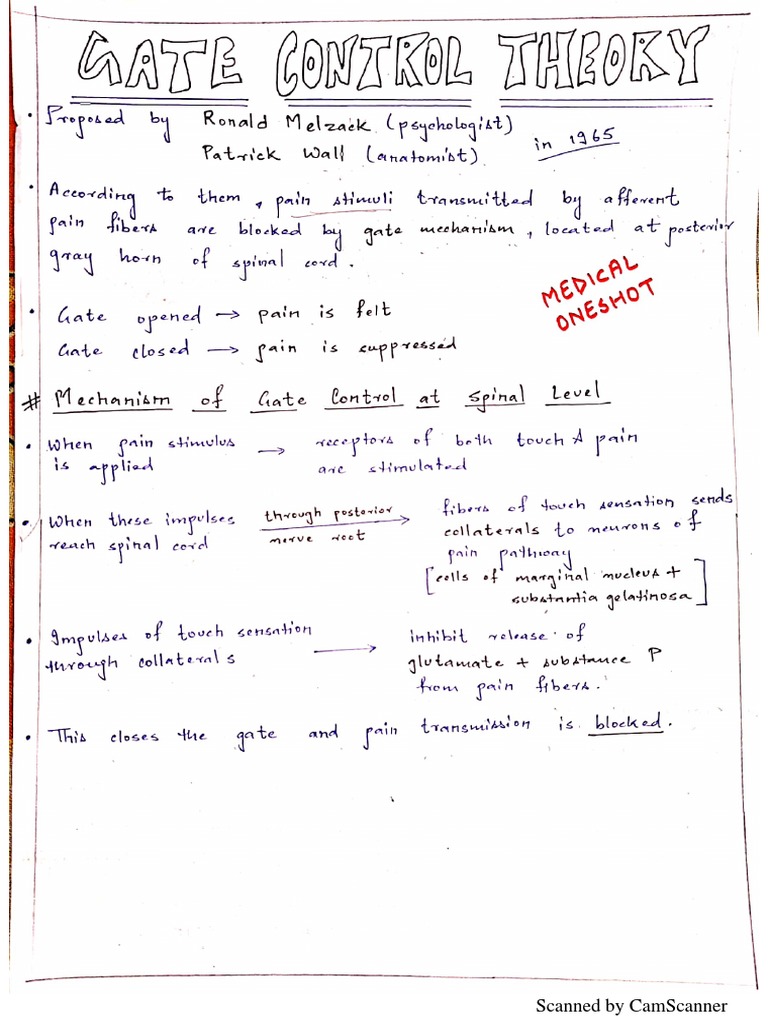 GATE CONTROL THEORY
• Proposed by Ronald Melzack (psychologist)
Patrick Wall (anatomist)
in 1965
• According to them, pain stimuli transmitted by afferent
pain fibers are blocked by gate mechanism, located at posterior
gray horn of spinal cord.
MEDICAL
ONESHOT
• Gate opened → pain is felt
Gate closed → pain is suppressed
# Mechanism of Gate Control at Spinal Level
• When pain stimulus → receptors of both touch & pain
is applied are stimulated
• When these impulses through posterior fibers of touch sensation sends
reach spinal cord nerve root → collaterals to neurons of
pain pathway
[cells of marginal nucleus +
substantia gelatinosa]
• Impulses of touch sensation → inhibit release of
through collaterals glutamate + substance P
from pain fibers.
• This closes the gate and pain transmission is blocked.
Scanned by CamScanner